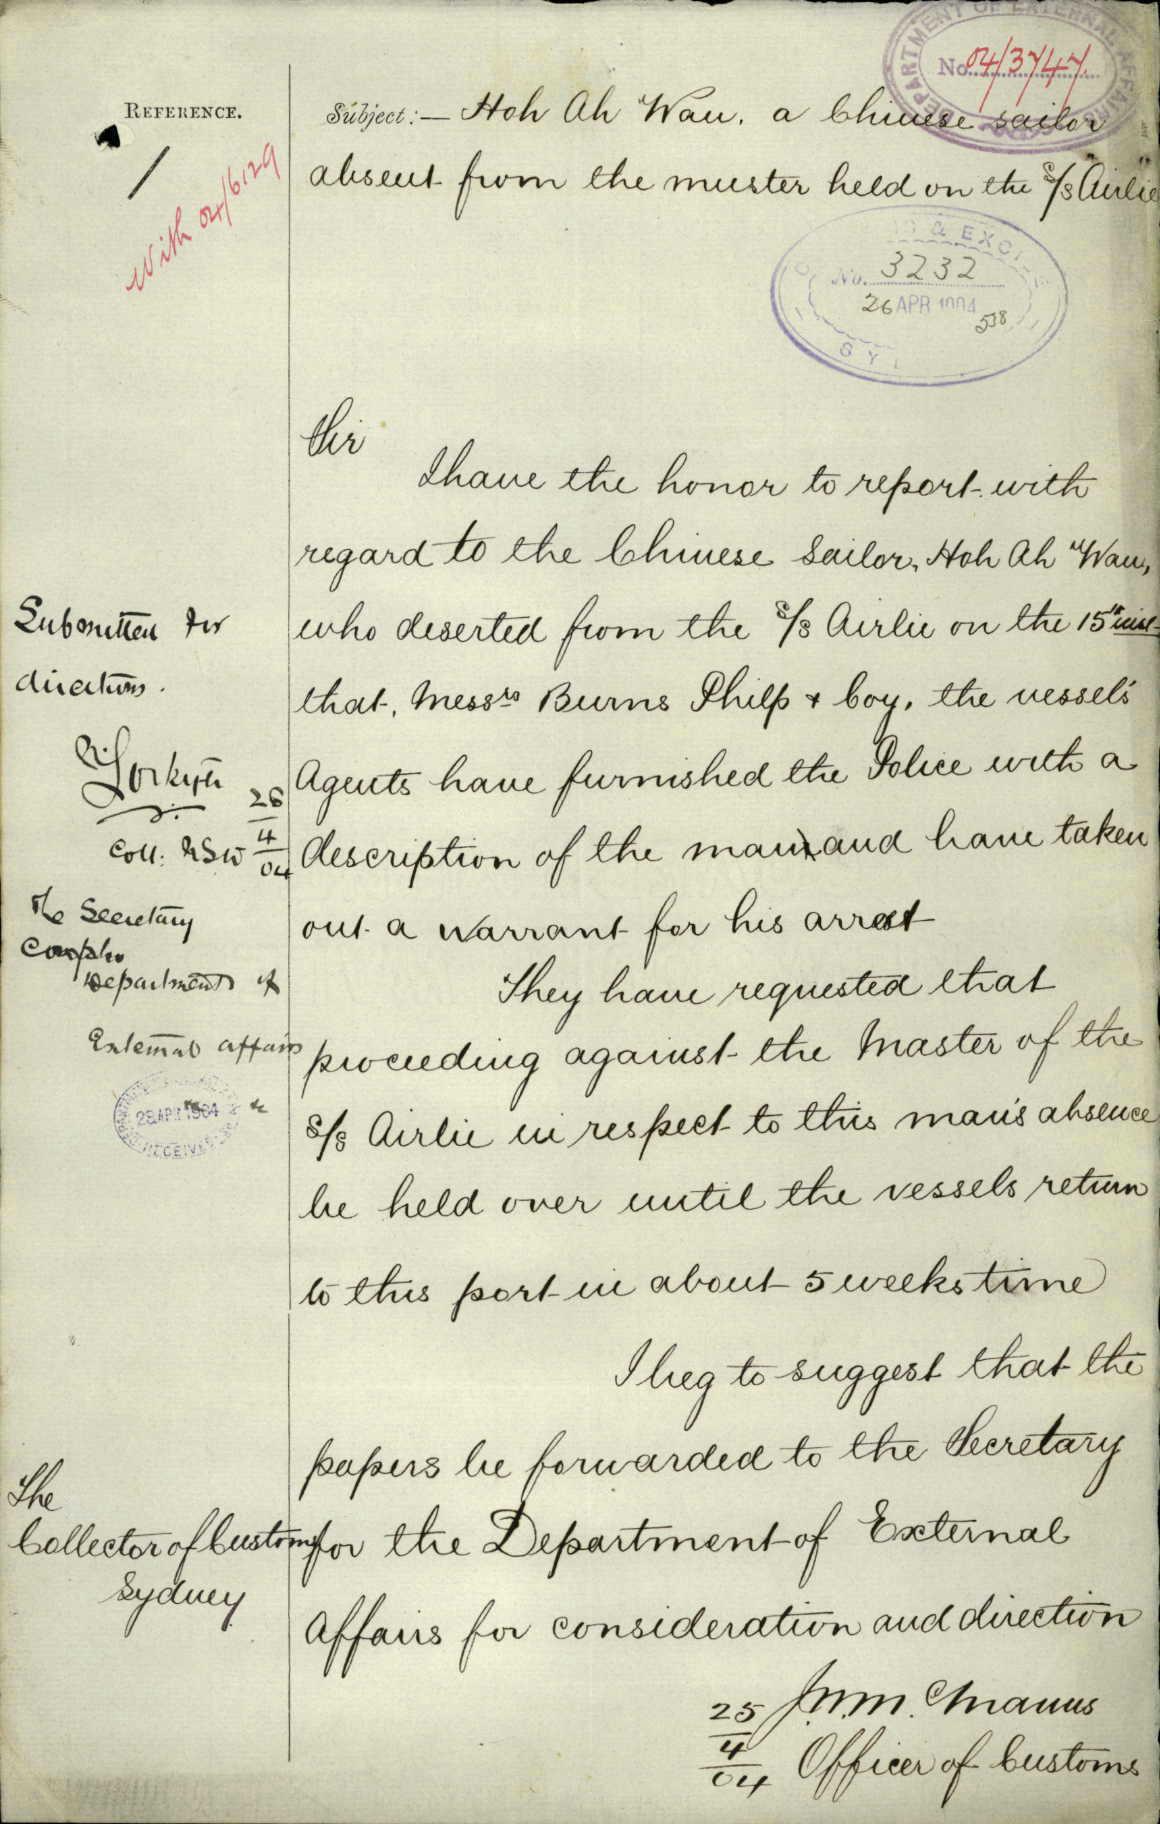 DEPARTMENT OF EXTERNAL AFFAIRS
No. 04/3747.
REFERENCE.
With 04/6129
Subject:— Hoh Ah Wau, a Chinese sailor
absent from the muster held on the S/S "Airlie"
& EXCISE
No. 3232
26 APR 1904
538
SY
Sir
I have the honor to report with
regard to the Chinese Sailor, Hoh Ah Wau,
who deserted from the S/S Airlie on the 15th inst
that, Messrs Burns Philp & Coy, the vessel's
Agents have furnished the Police with a
description of the man and have taken
out a warrant for his arrest
They have requested that
proceeding against the Master of the
S/S Airlie in respect to this man's absence
be held over until the vessels return
to this port in about 5 weeks time
I beg to suggest that the
papers be forwarded to the Secretary
for the Department of External
Affairs for consideration and direction
25/4/04 J.W.M. Manus
Officer of Customs
Submitted for
directions.
Coll: NSW 26/4/04
The Secretary
Department of
External Affairs
28 APR 1904
RECEIVED
The
Collector of Customs
Sydney